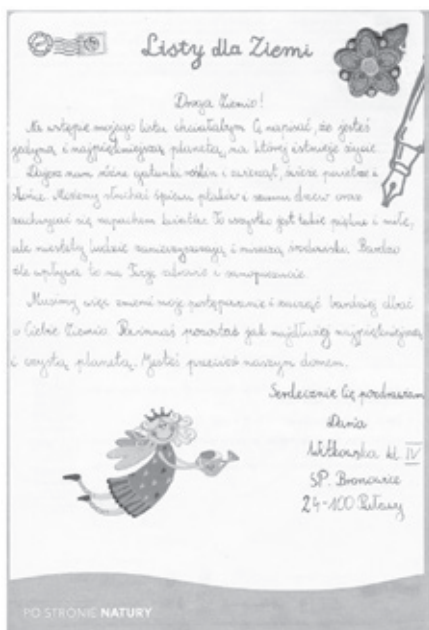 Listy dla Ziemi
Droga Ziemio!
Na wstępie mojego listu chciałabym Ci napisać, że jesteś
jedyną i najpiękniejszą planetą, na której istnieje życie.
Dajesz nam różne gatunki roślin i zwierząt, świeże powietrze i
słońce. Możemy słuchać śpiewu ptaków i szumu drzew oraz
zachwycać się zapachem kwiatów. To wszystko jest takie piękne i miłe,
ale niestety ludzie zanieczyszczają i niszczą środowisko. Bardzo
źle wpływa to na Twoje zdrowie i samopoczucie.
Musimy więc zmienić swoje postępowanie i zacząć bardziej dbać
o Ciebie Ziemio. Powinnaś pozostać jak najdłużej najpiękniejszą
i czystą planetą. Jesteś przecież naszym domem.
Serdecznie Cię pozdrawiam
Daria
Witkowska kl. IV
SP. Bronowice
24-100 Puławy
PO STRONIE NATURY